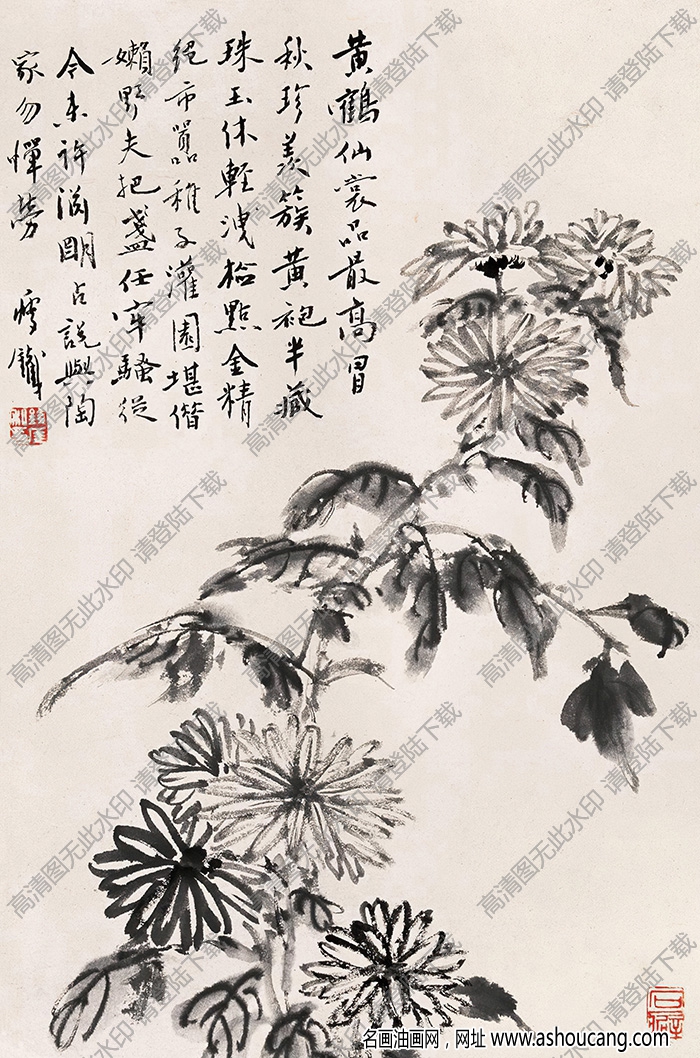 黄鶴仙裳品最高冒
秋珍羡簇黄袍半藏
珠玉休輕洩檢點金精
絕市囂稚子灌園堪偕
嬾野夫把盞任牢騷從
令未許淵明占說與陶
家勿憚勞
雪鐵
名画油画网，网址 www.ashoucang.com
高清图无此水印 请登陆下载